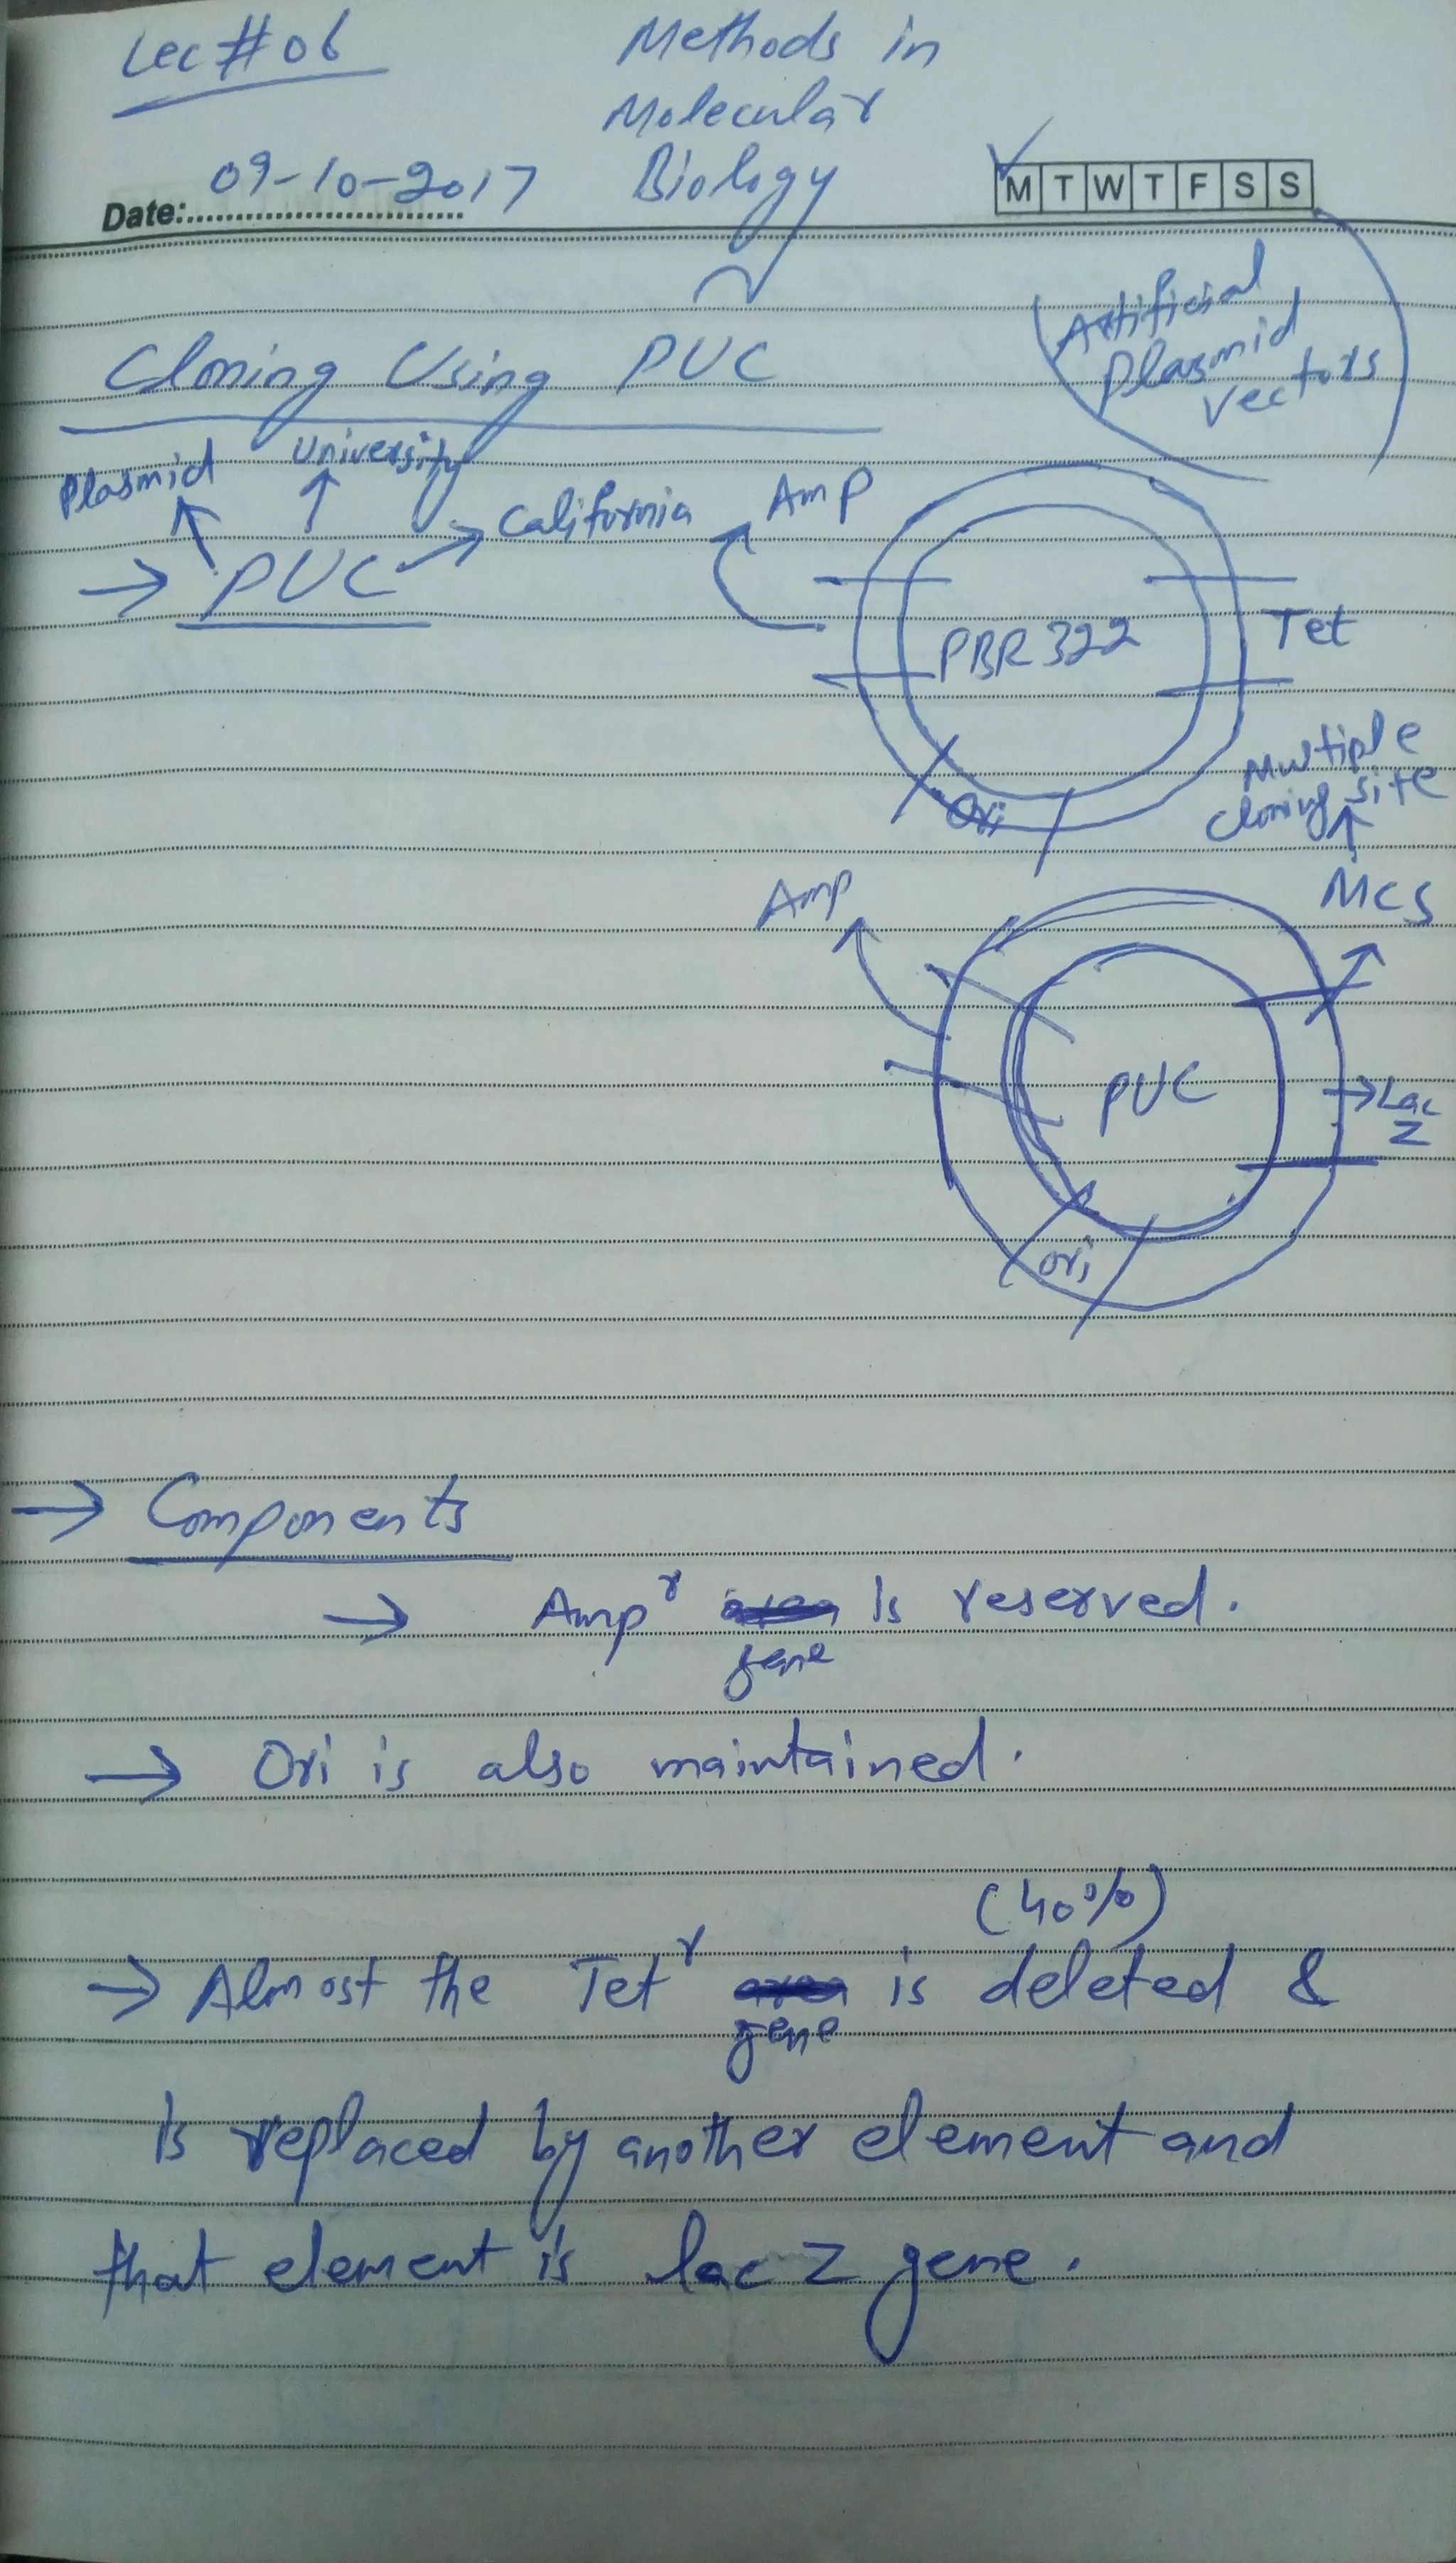 Lec # 06
Methods in
Molecular
Biology
Date: 09-10-2017
M T W T F S S
Artificial
Plasmid
vectors
Cloning Using PUC
Plasmid University California
→ PUC
Amp
PBR322
Tet
Ori
Multiple
cloning site
MCS
Amp
PUC
→ Lac
Z
Ori
→ Components
→ Amp^r gene is reserved.
→ Ori is also maintained.
(40%)
→ Almost the Tet^r gene is deleted &
is replaced by another element and
that element is lac Z gene.